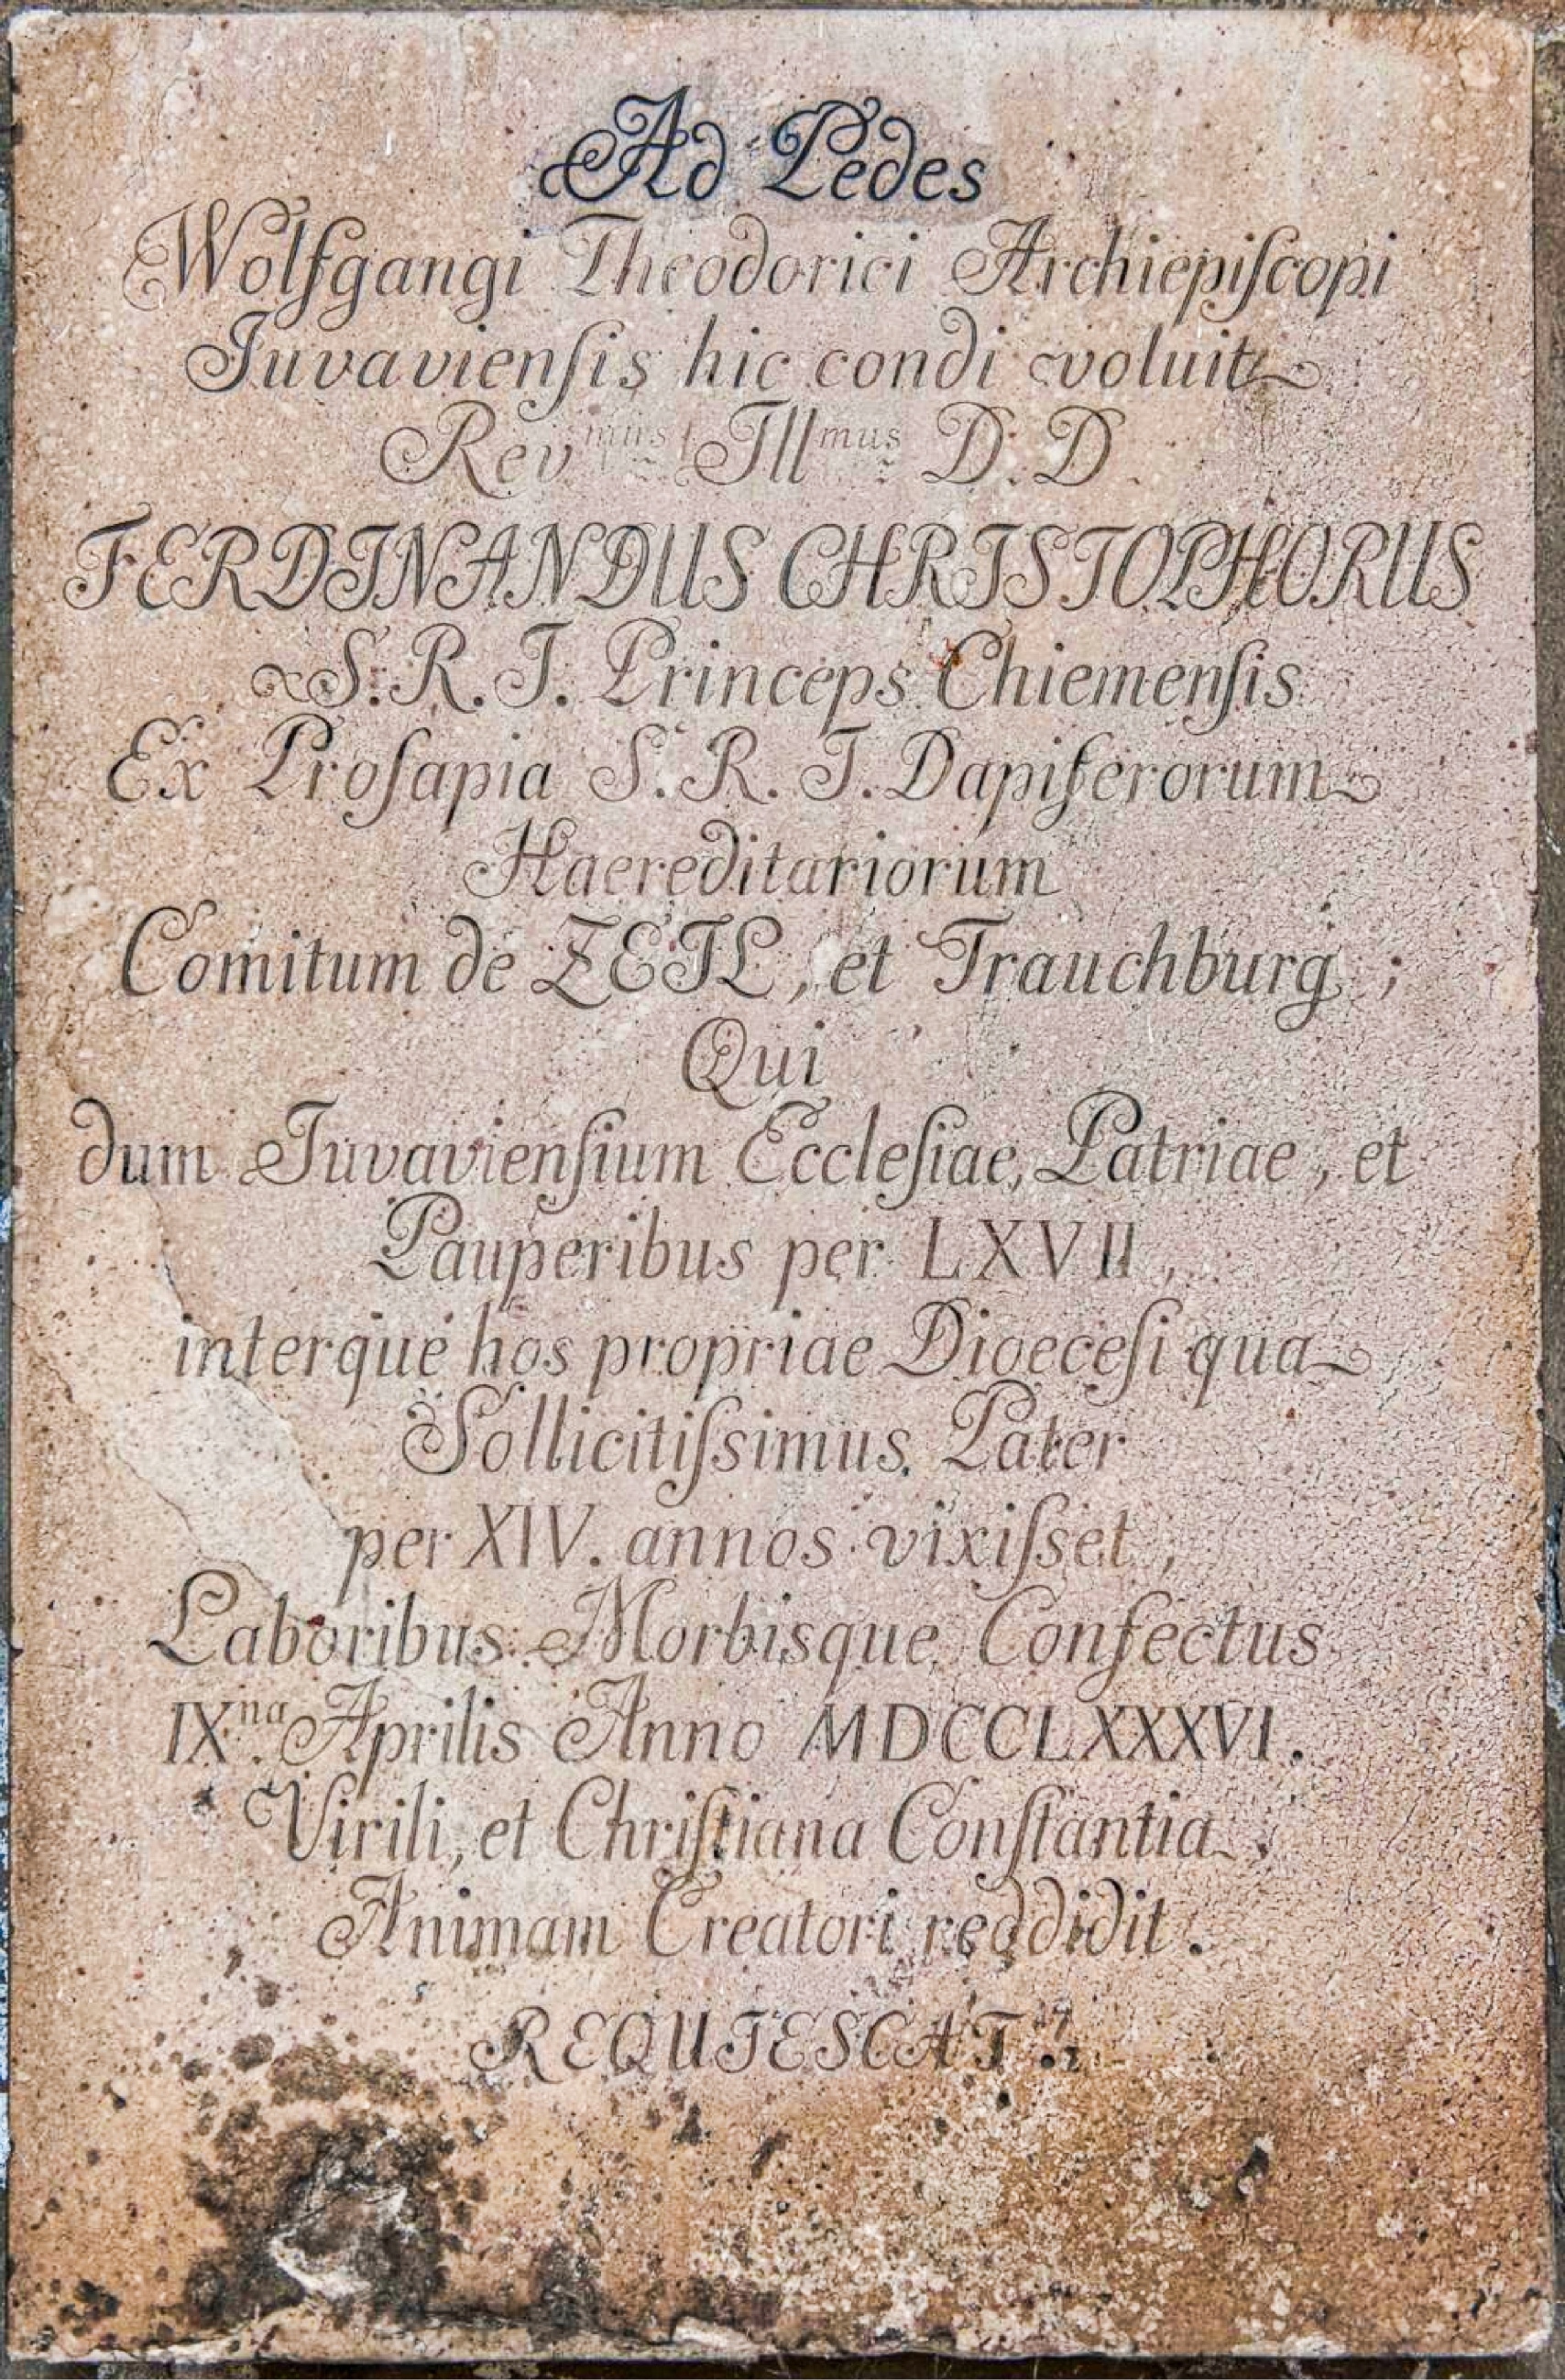 Ad Pedes
Wolfgangi Theodorici Archiepiſcopi
Juvavienſis hic condi voluit
Revmus Illmus D. D.
FERDINANDUS CHRISTOPHORUS
S. R. I. Princeps Chiemenſis
Ex Proſapia S. R. I. Dapiferorum
Haereditariorum
Comitum de ZEIL, et Trauchburg;
Qui
dum Juvavienſium Eccleſiae, Patriae, et
Pauperibus per LXVII,
interque hos propriae Dioeceſi qua
Sollicitiſsimus Pater
per XIV. annos vixiſset,
Laboribus Morbisque Confectus
IXna. Aprilis Anno MDCCLXXXVI.
Virili, et Chriſtiana Conſtantia,
Animam Creatori reddidit.
REQUIESCAT.